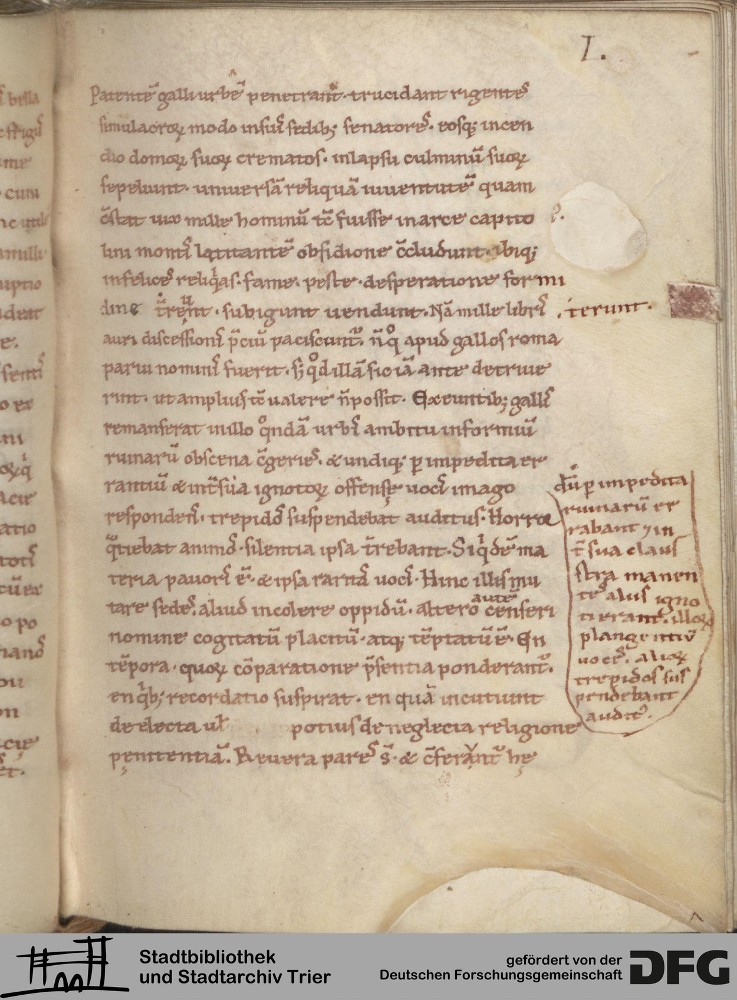 I.
Patentē galli urbē penetrant · trucidant rigentes
simulacroꝝ modo in suis sedib; senatores · eosq; incen
dio domoꝝ suoꝝ crematos · in lapsu culminū suoꝝ
sepeliunt · universā reliquā iuventutē quam
c̄stat vix mille hominū tc̄ fuisse in arce capito
lini montis latitantē obsidione c̄cludunt · ubiq;
infelices reliq̇as · fame · peste · desperatione formi
dine · subigunt vendunt · Nā mille libris
terunt ·
auri discessionis p̄ciū paciscunt · n̄ q̊ apud gallos roma
parui nominis fuerit · s; q̊d illā sic iā ante detriue
runt · ut amplius tc̄ ualere n̄ possit · Exeuntib; gallis
remanserat in illo q̊ndā urbis ambitu informiū
ruinarū obscena c̄geries · & undiq; ꝑ impedita er
rantiū & in t̄ sua ignotoꝝ offense vocis imago
respondens · trepidos suspendebat auditus · Horror
q̇tiebat animos · silentia ipsa t̄rebant · Siq̇dē ma
teria pauoris ē · & ipsa raritas vocis · Hinc illis mu
tare sedes · aliud incolere oppidū · altero autē censeri
nomine cogitatū placitū · atq; tēptatū ē · En
tēpora · quoꝝ cōparatione p̄sentia ponderant ·
en q̇b; recordatio suspirat · en quā incutiunt
de electa ul potius de neglecta religione
penitentiā · Revera pares s̄ · & c̄ferunt hę
dū ꝑ impedita
ruinarū er
rabant ⁊ in
t̄ sua claus
stra manen
tes alius igno
ti errantis illoꝝ
plangentiū
uoces · alioꝝ
trepidos sus
pendebant
audit ·
Stadtbibliothek
und Stadtarchiv Trier
gefördert von der
Deutschen Forschungsgemeinschaft
DFG